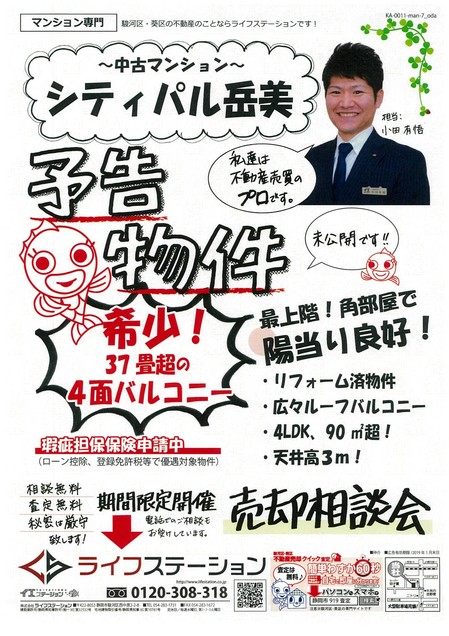 KA-0011-man-7_oda
マンション専門 駿河区・葵区の不動産のことならライフステーションです！
～中古マンション～
シティパル岳美
担当：
小田 有悟
私達は
不動産売買の
プロです。
予告
物件
未公開です!!
希少！
37畳超の
4面バルコニー
最上階！角部屋で
陽当り良好！
・リフォーム済物件
・広々ルーフバルコニー
・4LDK、90㎡超！
・天井高3m！
瑕疵担保保険申請中
（ローン控除、登録免許税等で優遇対象物件）
相談無料
査定無料
秘密は厳守
致します！
期間限定開催
電話でのご相談も
お受けしています。
売却相談会
ライフステーション
http://www.lifestation.co.jp
イエステーション
0120-308-318
株式会社ライフステーション
駿河区・葵区
不動産売却クイック査定
査定は
無料♪
簡単わずか60秒
パソコン&スマホ
静岡市 919 査定 検索